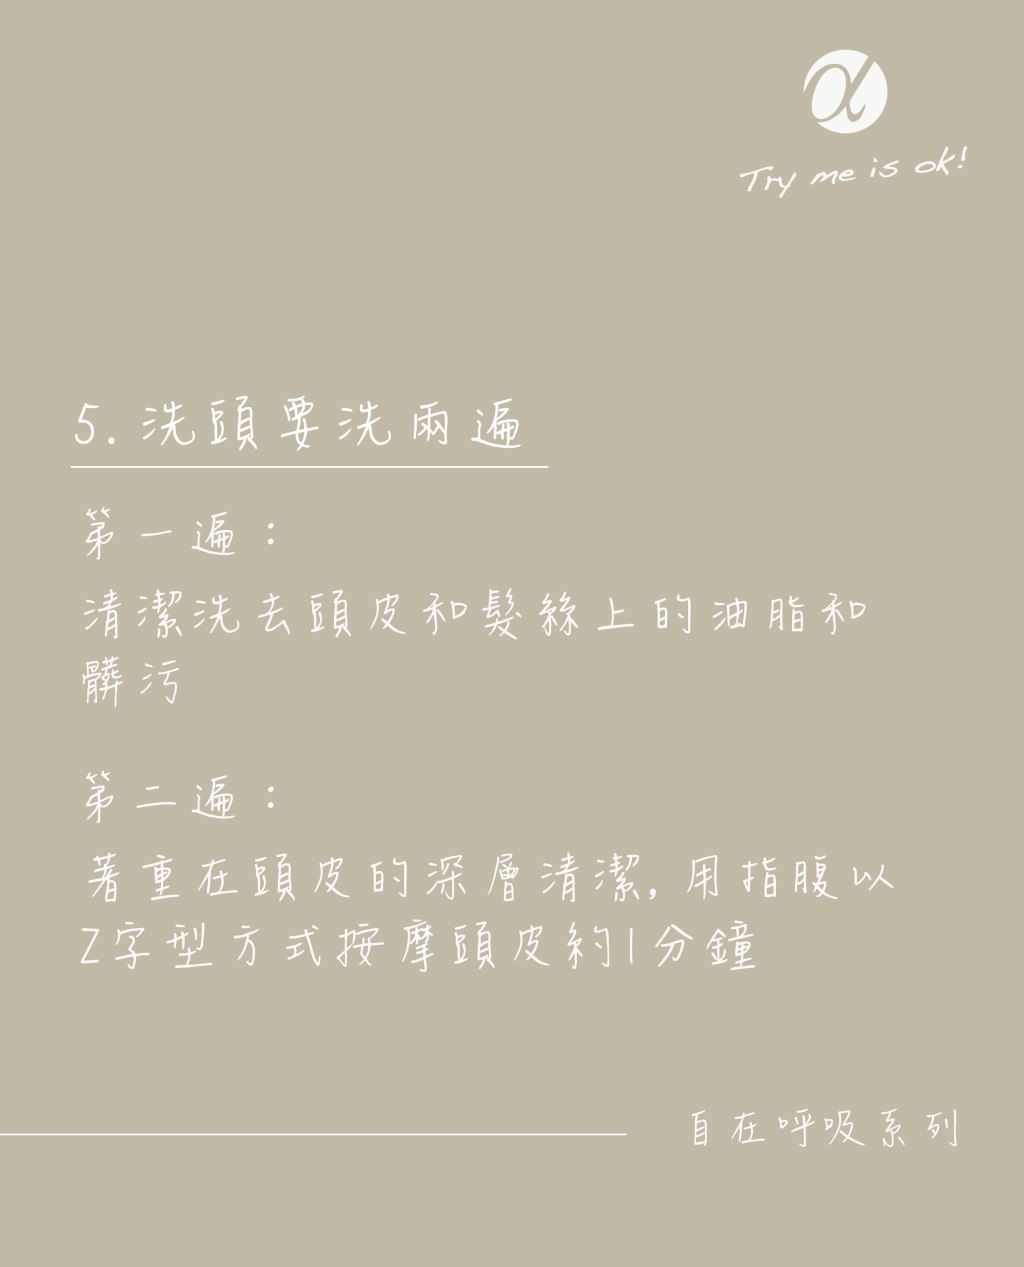 α
Try me is ok!
5.洗頭要洗兩遍
第一遍：
清潔洗去頭皮和髮絲上的油脂和
髒污
第二遍：
著重在頭皮的深層清潔,用指腹以
Z字型方式按摩頭皮約1分鐘
自在呼吸系列